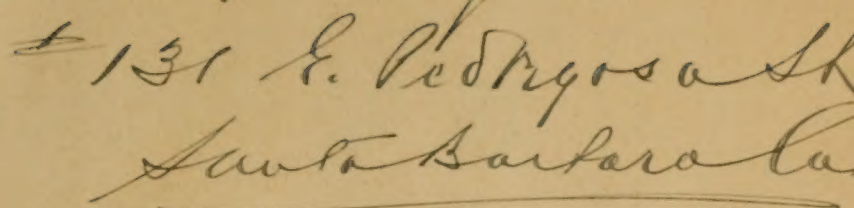 # 131 E. Pedregosa St
Santa Barbara Ca